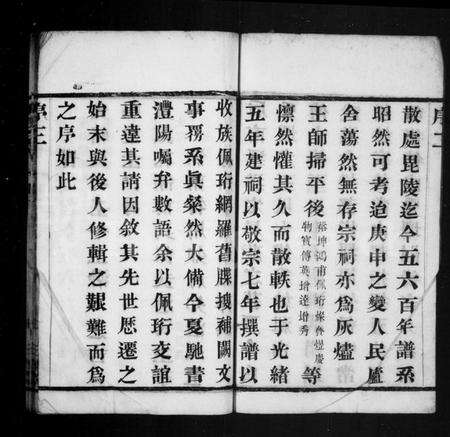 序二
散處毘陵迄今五六百年譜系
昭然可考迨庚申之變人民廬
舍蕩然無存宗祠亦為灰燼
王師掃平後
等
懔然懼其久而散軼也于光緒
五年建祠以敬宗七年撰譜以
收族佩珩網羅舊牒搜補闕文
事務系眞粲然大備今夏馳書
澧陽囑弁數語余以佩珩交誼
重違其請因敘其先世厯遷之
始末與後人修輯之艱難而為
之序如此
序三